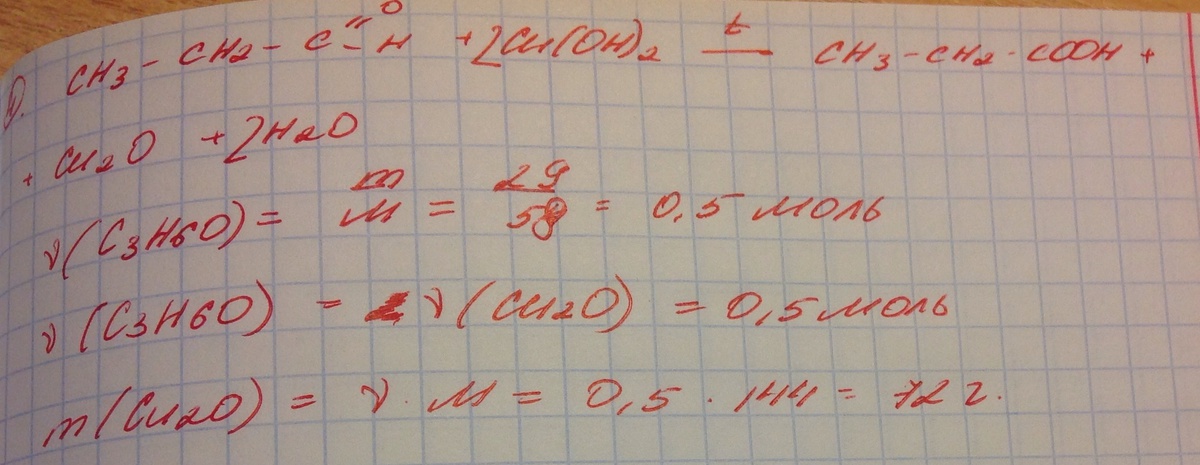 1). CH3 - CH2 - C =O - H + 2Cu(OH)2 t— CH3 - CH2 - COOH +
+ Cu2O + 2H2O
ν(C3H6O) = m/M = 29/58 = 0,5 моль
ν(C3H6O) = ν(Cu2O) = 0,5 моль
m(Cu2O) = ν · M = 0,5 · 144 = 72 г.